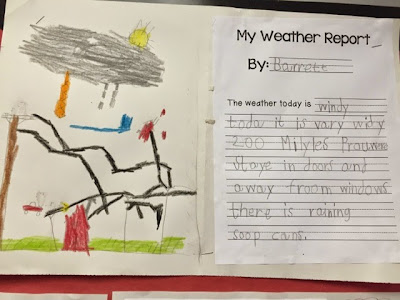 My Weather Report
By: Barrett
The weather today is windy
toda it is vary widy
200 Milyles Prauwre
Staye in doors and
away froom windows
there is raining
soop cans.